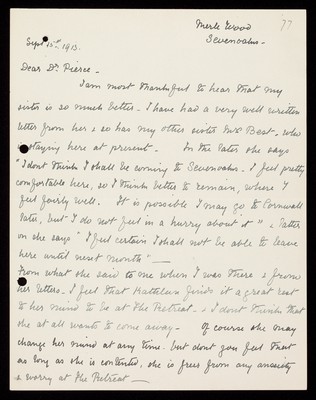 77
Merle Wood
Sevenoaks -
Sept 15th 1913.
Dear Dr. Pierce -
I am most thankful to hear that my
sister is so much better - I have had a very well written
letter from her & so has my other sister Mrs Best - who
is staying here at present - In the latter she says
"I dont think I shall be coming to Sevenoaks - I feel pretty
comfortable here, so I think better to remain, where I
feel fairly well. It is possible I may go to Cornwall
later, but I do not feel in a hurry about it" & latter
on she says "I feel certain I shall not be able to leave
here until next month" -
From what she said to me when I was there & from
her letters - I feel that Kathleen finds it a great rest
to her mind to be at the Retreat - & I dont think that
she at all wants to come away - Of course she may
change her mind at any time - but dont you feel that
as long as she is contented, she is free from any anxiety
& worry at the Retreat -